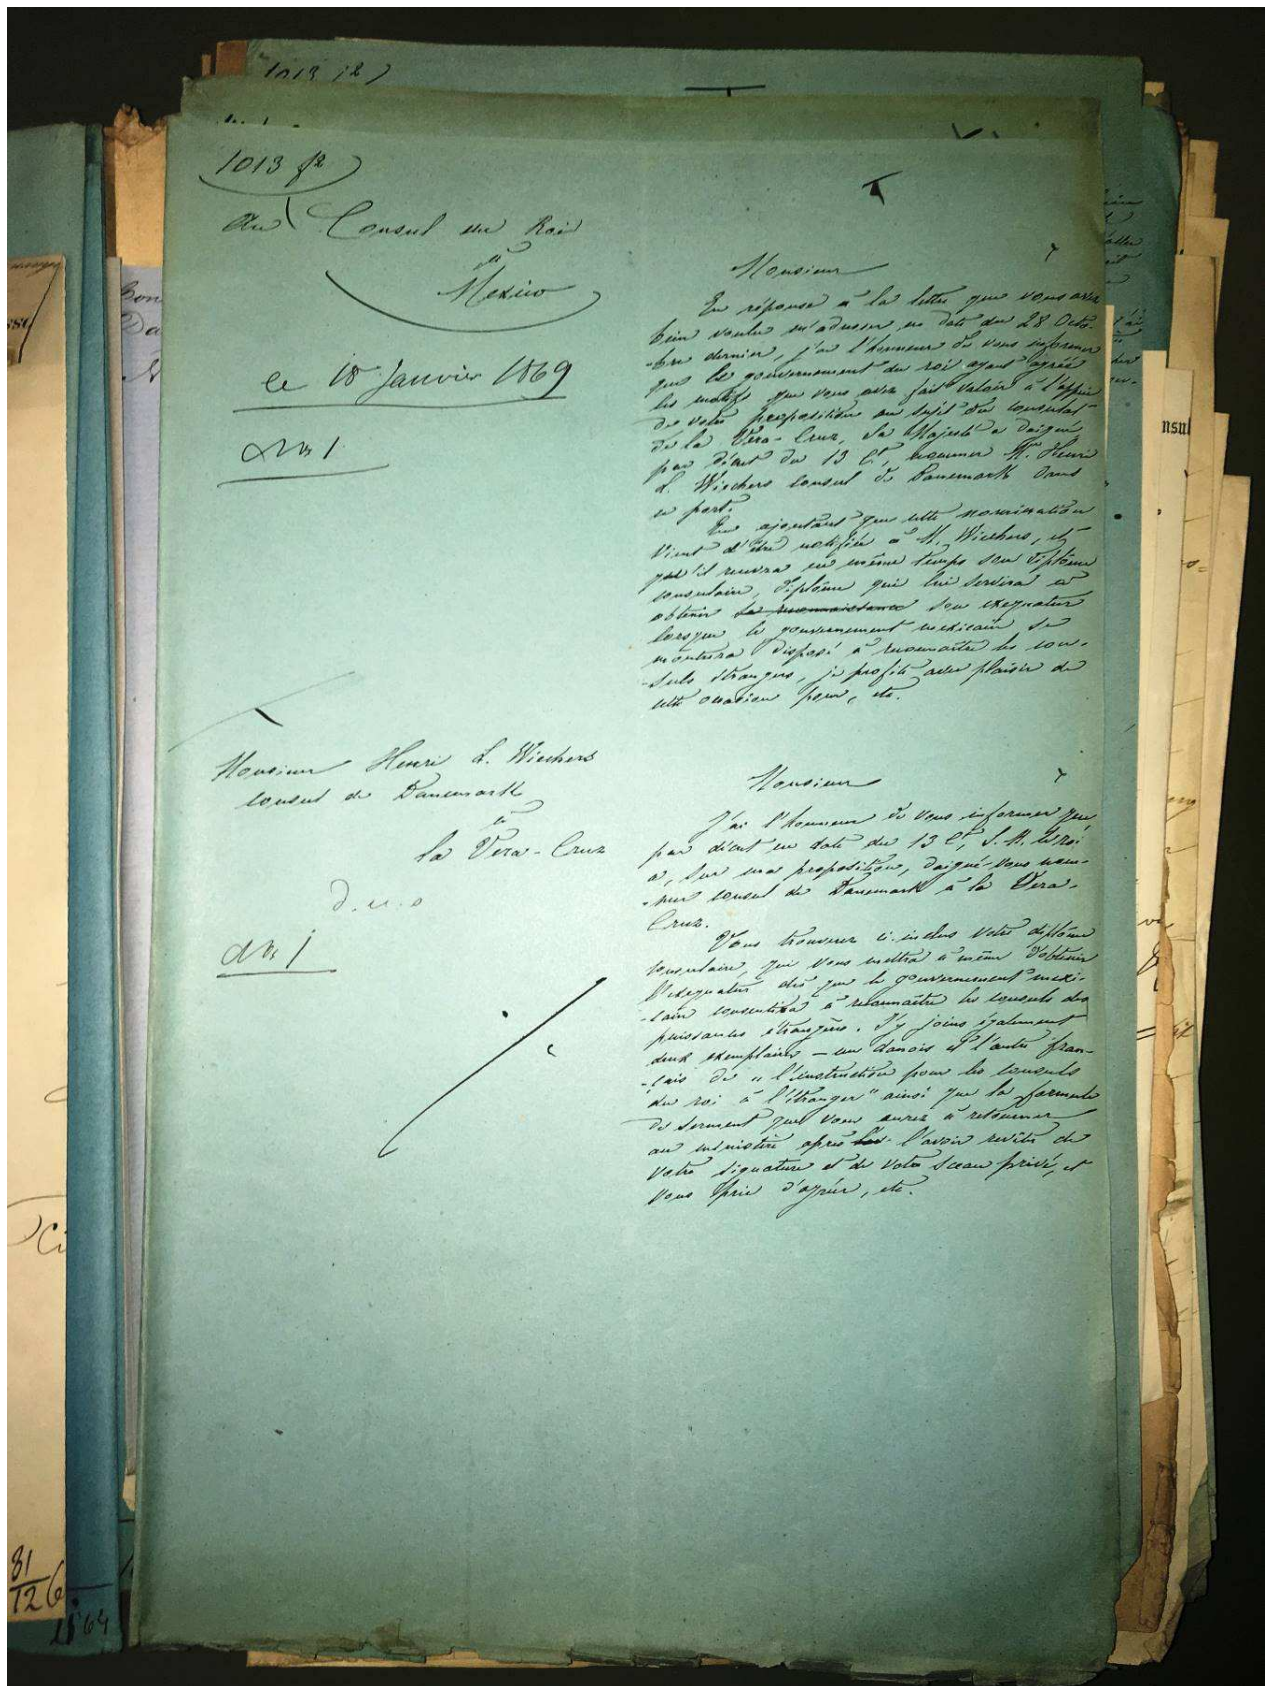 1013 f2
Au Consul du Roi
à
Mexico
le 18 Janvier 1869
No 1
Monsieur
En réponse à la lettre que vous avez
bien voulu m'adresser en date du 28 Octo-
-bre dernier, j'ai l'honneur de vous informer
que le gouvernement du roi ayant agréé
les motifs que vous avez fait valoir à l'appui
de votre proposition au sujet du consulat
de la Vera-Cruz, Sa Majesté a daigné
par décret du 13 Ct, nommer Mr. Henri
L. Wiechers consul de Danemark dans
ce port.
En ajoutant que cette nomination
vient d'être notifiée à M. Wiechers, et
qu'il recevra en même temps son diplôme
consulaire, diplôme qui lui servira à
obtenir la reconnaissance son exequatur
lorsque le gouvernement mexicain se
montrera disposé à reconnaître les con-
-suls étrangers, je profite avec plaisir de
cette occasion pour, etc.
Monsieur Henri L. Wiechers
consul de Danemark
à
la Vera-Cruz
d. u. o
No 1
Monsieur
J'ai l'honneur de vous informer que
par décret en date du 13 Ct, S. M. le roi
a, sur ma proposition, daigné vous nom-
-mer consul de Danemark à la Vera-
Cruz.
Vous trouverez ci-inclus votre diplôme
consulaire, qui vous mettra à même d'obtenir
l'exequatur dès que le gouvernement mexi-
-cain consentira à reconnaître les consuls des
puissances étrangères. J'y joins également
deux exemplaires – un danois et l'autre fran-
-çais de "l'instruction pour les consuls
du roi à l'étranger" ainsi que la formule
de serment que vous aurez à retourner
au ministère après l'avoir revêtue de
votre signature et de votre sceau privé, et
vous prie d'agréer, etc.
nsul
81
12 6